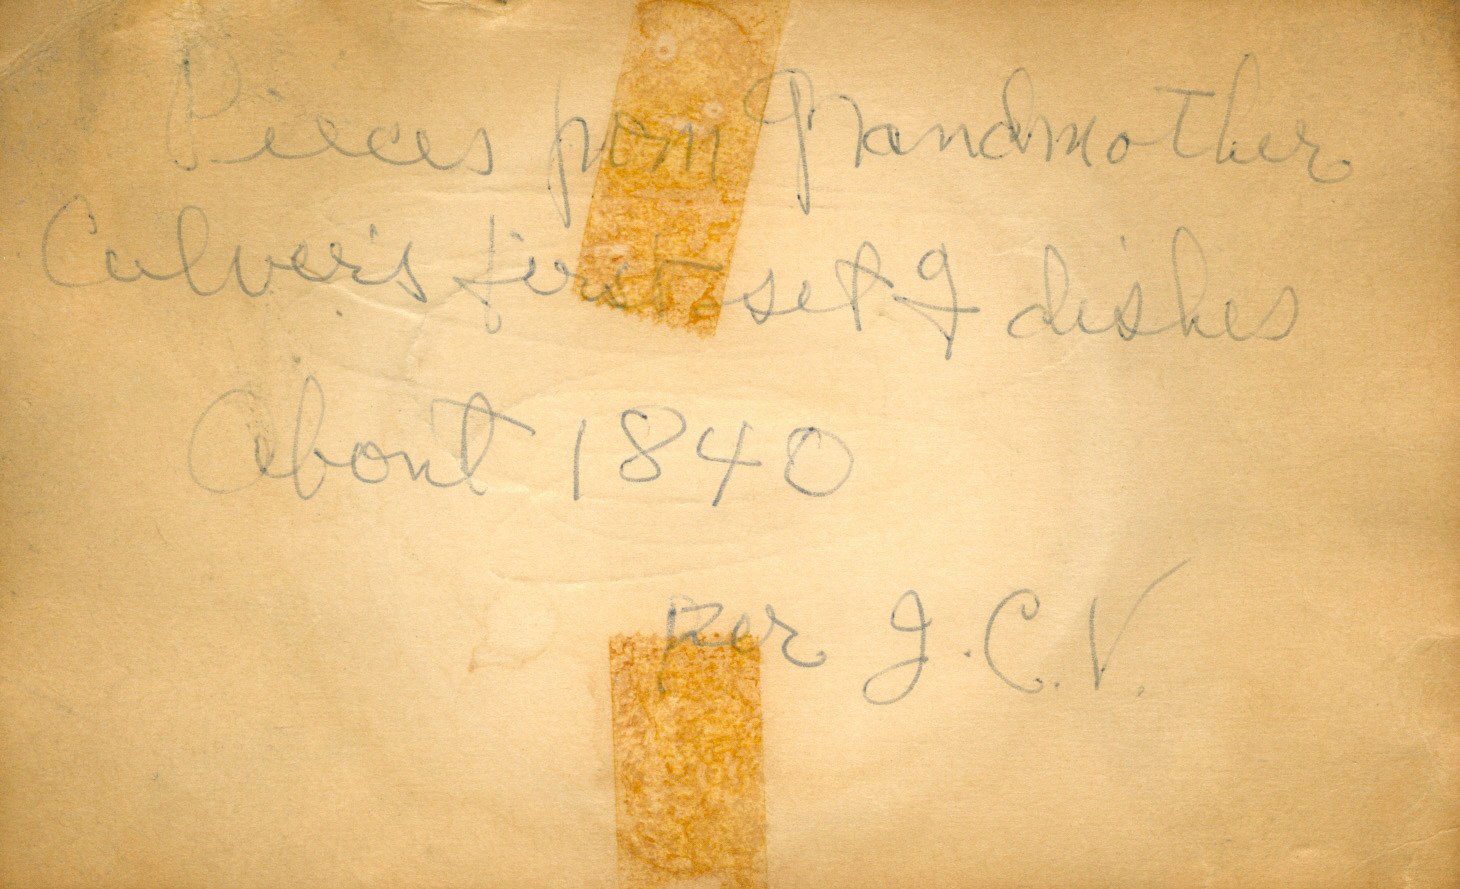 Pieces from Grandmother
Culver's first set of dishes
About 1840
Per J. C. V.